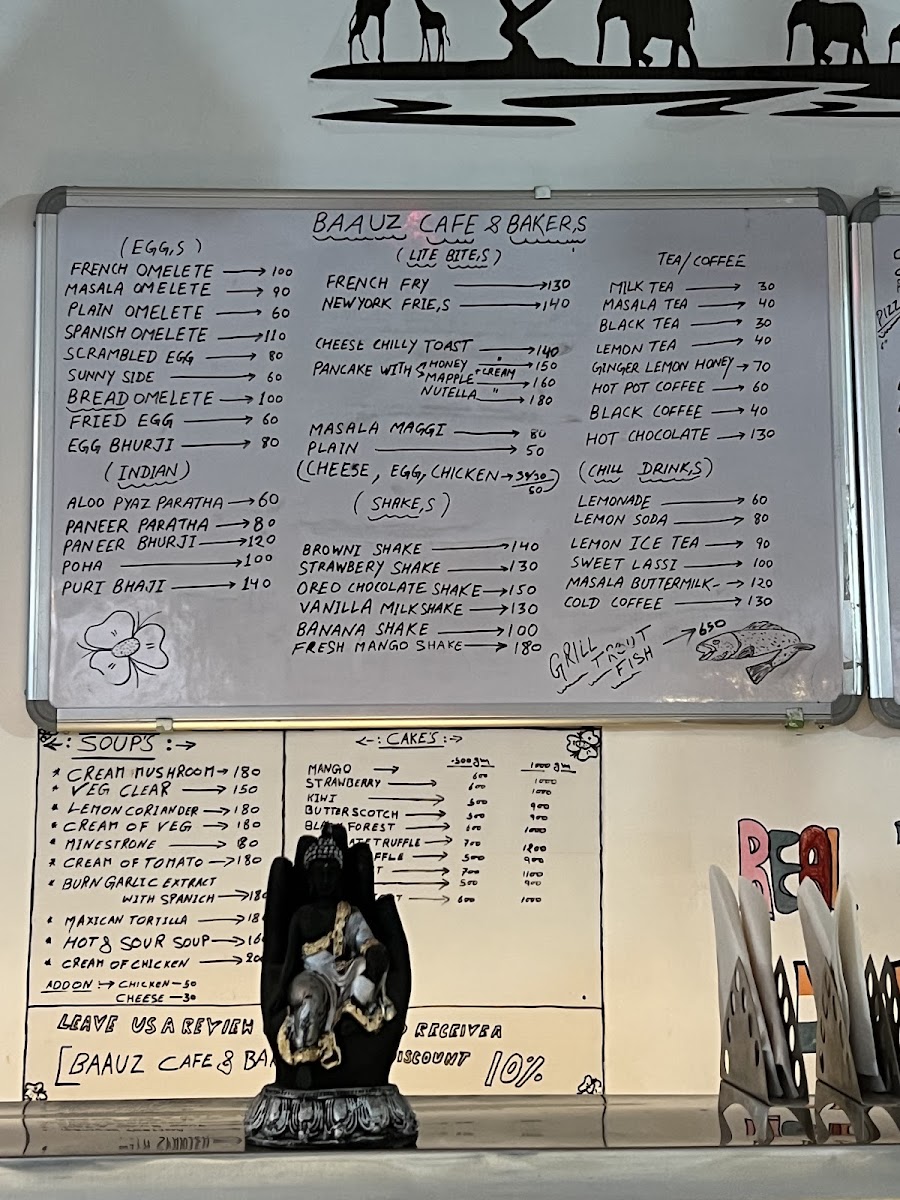 BAAUZ CAFE & BAKER,S
(EGG,S)
FRENCH OMELETE → 100
MASALA OMELETE → 90
PLAIN OMELETE → 60
SPANISH OMELETE → 110
SCRAMBLED EGG → 80
SUNNY SIDE → 60
BREAD OMELETE → 100
FRIED EGG → 60
EGG BHURJI → 80
(INDIAN)
ALOO PYAZ PARATHA → 60
PANEER PARATHA → 80
PANEER BHURJI → 120
POHA → 100
PURI BHAJI → 140
(LITE BITE,S)
FRENCH FRY → 130
NEWYORK FRIE,S → 140
CHEESE CHILLY TOAST → 140
PANCAKE WITH HONEY " → 150
MAPPLE + CREAM → 160
NUTELLA " → 180
MASALA MAGGI → 80
PLAIN → 50
(CHEESE, EGG, CHICKEN → 30/30/50)
(SHAKE,S)
BROWNI SHAKE → 140
STRAWBERY SHAKE → 130
OREO CHOCOLATE SHAKE → 150
VANILLA MILKSHAKE → 130
BANANA SHAKE → 100
FRESH MANGO SHAKE → 180
TEA/COFFEE
MILK TEA → 30
MASALA TEA → 40
BLACK TEA → 30
LEMON TEA → 40
GINGER LEMON HONEY → 70
HOT POT COFFEE → 60
BLACK COFFEE → 40
HOT CHOCOLATE → 130
(CHILL DRINK,S)
LEMONADE → 60
LEMON SODA → 80
LEMON ICE TEA → 90
SWEET LASSI → 100
MASALA BUTTERMILK → 120
COLD COFFEE → 130
GRILL TROUT FISH → 650
PIZZ
←: SOUP'S :→
* CREAM MUSHROOM → 180
* VEG CLEAR → 150
* LEMON CORIANDER → 180
* CREAM OF VEG → 180
* MINESTRONE → 180
* CREAM OF TOMATO → 180
* BURN GARLIC EXTRACT
WITH SPANICH → 180
* MAXICAN TORTILLA → 18
* HOT & SOUR SOUP → 16
* CREAM OF CHICKEN → 20
ADD ON → CHICKEN — 50
CHEESE — 30
←: CAKE'S :→
500 gm 1000 gm
MANGO → 600 1000
STRAWBERRY → 600 1000
KIWI → 500 900
BUTTERSCOTCH → 500 900
BLACK FOREST → 600 1000
ATE TRUFFLE → 700 1200
FFLE → 500 900
T → 700 1100
→ 500 900
T → 600 1000
LEAVE US A REVIEW RECEIVE A
[BAAUZ CAFE & BA ISCOUNT 10%
REAL